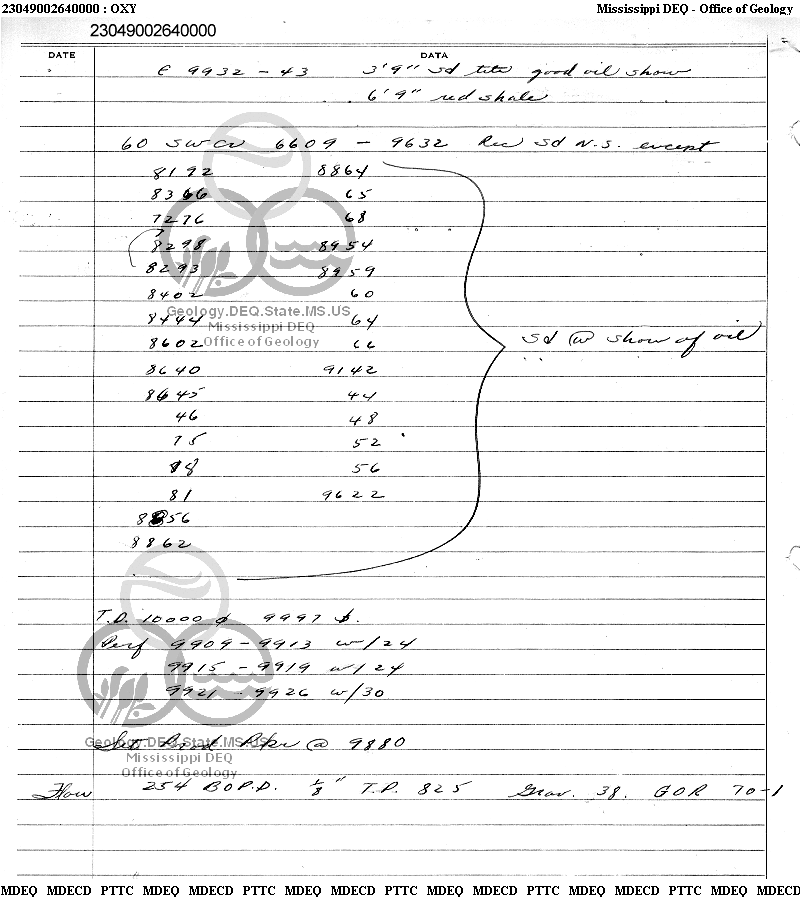 23049002640000 : OXY Mississippi DEQ - Office of Geology
23049002640000
DATE DATA
C 9932 - 43 3'9" sd tite good oil show
6'9" red shale
60 SWCs 6609 - 9632 Rec Sd N.S. except
8192 8864
8366 65
7276 68
8298 8954
8293 8959
8402 60
8444 64
8602 66
8640 9142
8645 44
46 48
75 52
78 56
81 9622
8856
8862
Sd @ show of oil
Geology.DEQ.State.MS.US
Mississippi DEQ
Office of Geology
T.D. 10000 9997
Perf 9909 - 9913 w/24
9915 - 9919 w/24
9921 - 9926 w/30
Set Prod Pkr @ 9880
Geology.DEQ.State.MS.US
Mississippi DEQ
Office of Geology
Flow 254 B.O.P.D. 1/8" T.P. 825 Grav. 38. GOR 70-1
MDEQ MDECD PTTC MDEQ MDECD PTTC MDEQ MDECD PTTC MDEQ MDECD PTTC MDEQ MDECD PTTC MDEQ MDECD